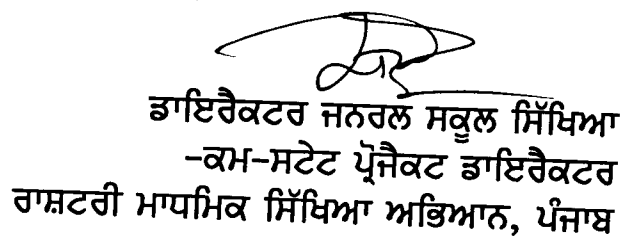 ਡਾਇਰੈਕਟਰ ਜਨਰਲ ਸਕੂਲ ਸਿੱਖਿਆ
-ਕਮ-ਸਟੇਟ ਪ੍ਰੋਜੈਕਟ ਡਾਇਰੈਕਟਰ
ਰਾਸ਼ਟਰੀ ਮਾਧਮਿਕ ਸਿੱਖਿਆ ਅਭਿਆਨ, ਪੰਜਾਬ